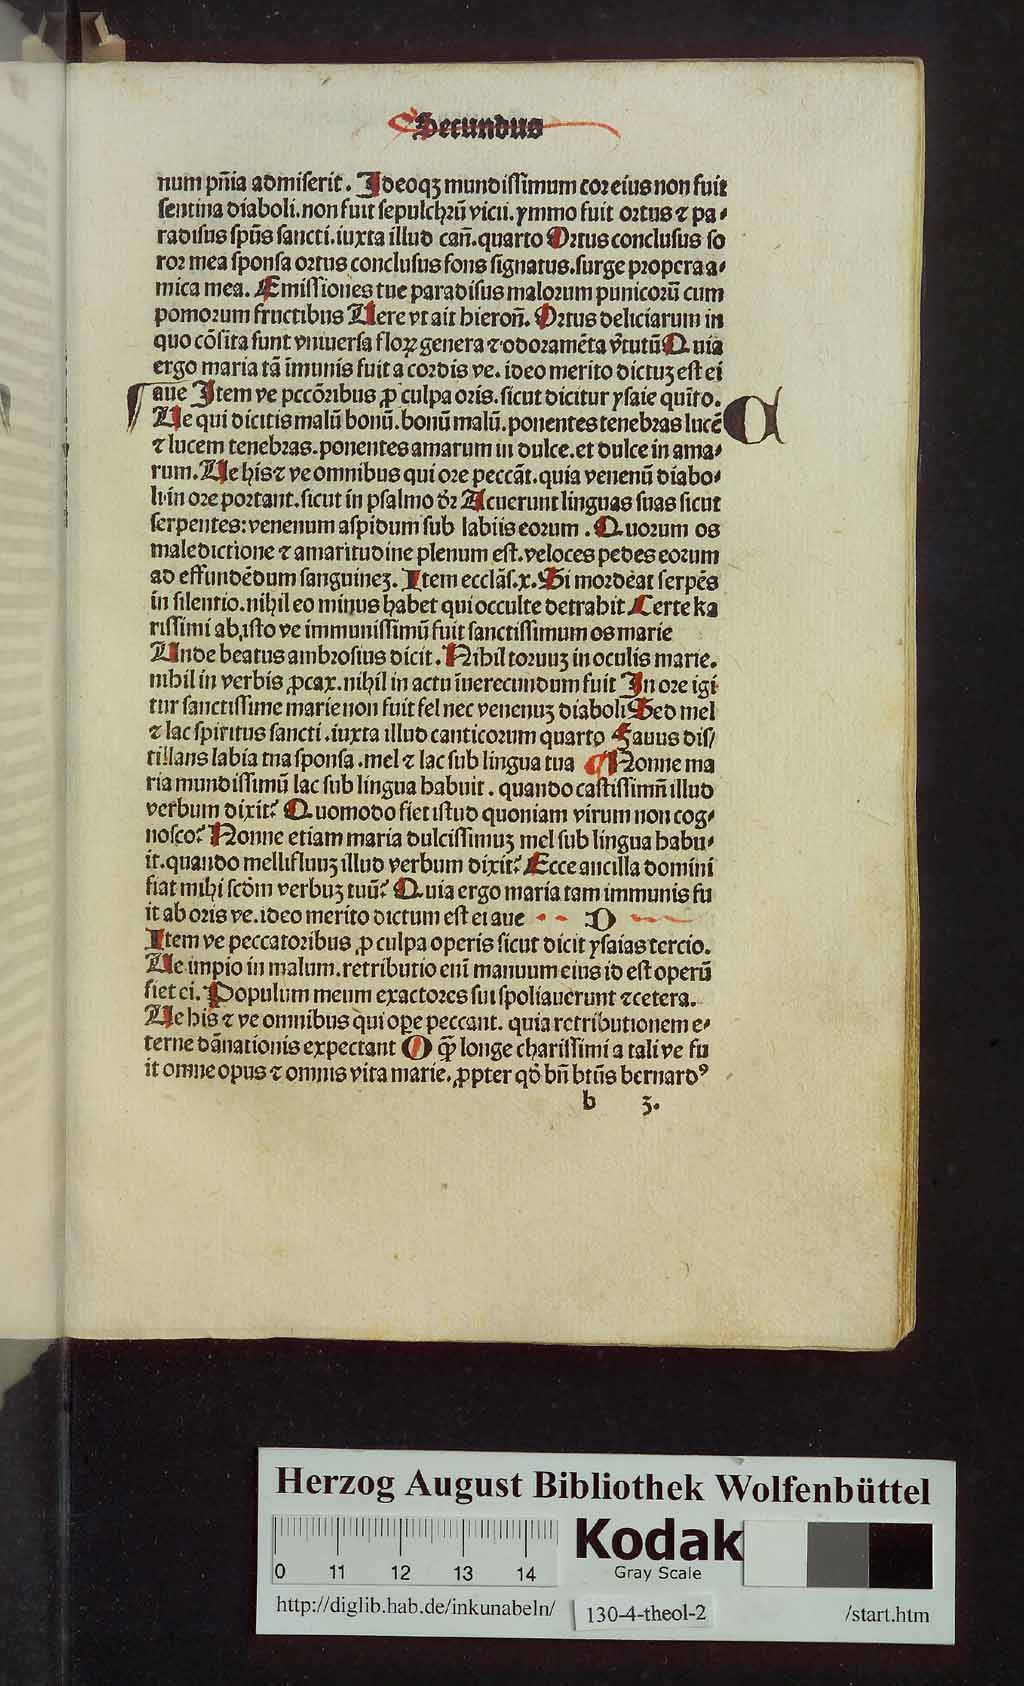 Secundus
num pñia admiserit. Ideoqꝫ mundissimum cor eius non fuit
sentina diaboli. non fuit sepulchrū vicii. ymmo fuit ortus ⁊ pa-
radisus spūs sancti. iuxta illud cañ. quarto Ortus conclusus so
ror mea sponsa ortus conclusus fons signatus. surge propera a-
mica mea. Emissiones tue paradisus malorum punicorū cum
pomorum fructibus Vere vt ait hieroñ. Ortus deliciarum in
quo cōsita sunt vniuersa floꝝ genera ⁊ odoramēta v̄tutū Quia
ergo maria tā īmunis fuit a cordis ve. ideo merito dictuꝫ est ei
aue Item ve pccōribus ꝓ culpa oris. sicut dicitur ysaie quīto.
Ve qui dicitis malū bonū. bonū malū. ponentes tenebras lucē
⁊ lucem tenebras. ponentes amarum in dulce. et dulce in ama-
rum. Ve his ⁊ ve omnibus qui ore peccāt. quia venenū diabo-
li in ore portant. sicut in psalmo dr̄ Acuerunt linguas suas sicut
serpentes: venenum aspidum sub labiis eorum. Quorum os
maledictione ⁊ amaritudine plenum est. veloces pedes eorum
ad effundēdum sanguineꝫ. Item ecclās. x. Si mordēat serpēs
in silentio. nihil eo minus habet qui occulte detrahit Certe ka
rissimi ab isto ve immunissimū fuit sanctissimum os marie
Unde beatus ambrosius dicit. Nihil toruuꝫ in oculis marie.
nihil in verbis ꝓcax. nihil in actu īuerecundum fuit In ore igi
tur sanctissime marie non fuit fel nec venenuꝫ diaboli Sed mel
⁊ lac spiritus sancti. iuxta illud canticorum quarto Fauus dis/
tillans labia tua sponsa. mel ⁊ lac sub lingua tua ¶ Nonne ma
ria mundissimū lac sub lingua habuit. quando castissimū illud
verbum dixit? Quomodo fiet istud quoniam virum non cog-
nosco? Nonne etiam maria dulcissimuꝫ mel sub lingua habu-
it. quando mellifluuꝫ illud verbum dixit? Ecce ancilla domini
fiat mihi scdm̄ verbuꝫ tuū? Quia ergo maria tam immunis fu
it ab oris ve. ideo merito dictum est ei aue D
Item ve peccatoribus ꝓ culpa operis sicut dicit ysaias tercio.
Ve impio in malum. retributio eni manuum eius id est operū
fiet ei. Populum meum exactores sui spoliauerunt ⁊cetera.
Ve his ⁊ ve omnibus qui ope peccant. quia retributionem e-
terne dānationis expectant O qꝫ longe charissimi a tali ve fu
it omne opus ⁊ omnis vita marie. ꝓpter qd̄ bn̄ btūs bernardꝰ
b 3.
C
Herzog August Bibliothek Wolfenbüttel
0 11 12 13 14
Kodak
Gray Scale
http://diglib.hab.de/inkunabeln/ 130-4-theol-2 /start.htm